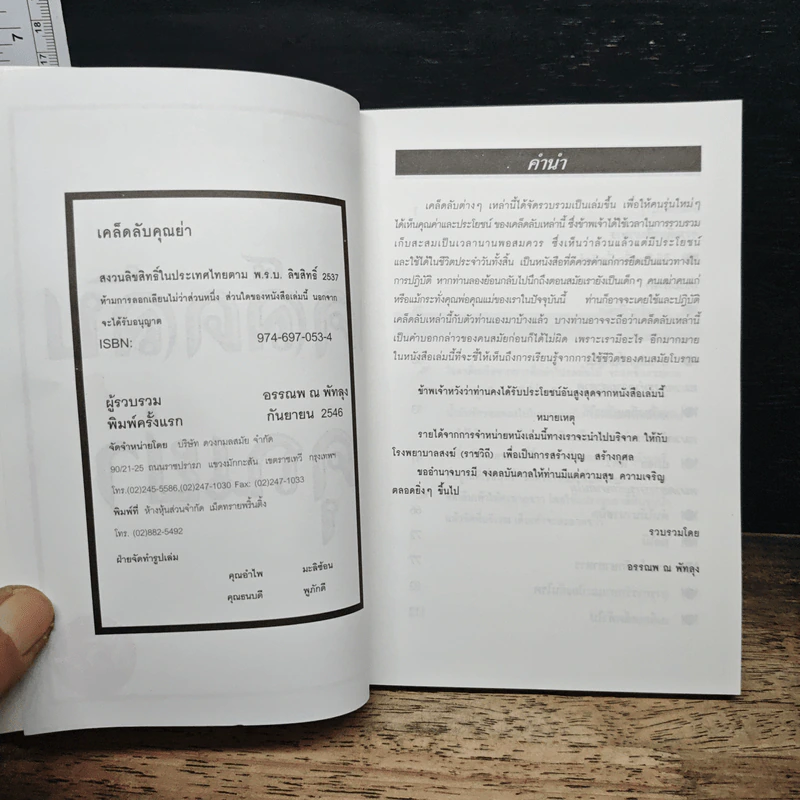 7
18
17
เคล็ดลับคุณย่า
สงวนลิขสิทธิ์ในประเทศไทยตาม พ.ร.บ. ลิขสิทธิ์ 2537
ห้ามการลอกเลียนไม่ว่าส่วนหนึ่ง ส่วนใดของหนังสือเล่มนี้ นอกจาก
จะได้รับอนุญาต
ISBN: 974-697-053-4
ผู้รวบรวม อรรณพ ณ พัทลุง
พิมพ์ครั้งแรก กันยายน 2546
จัดจำหน่ายโดย บริษัท ดวงกมลสมัย จำกัด
90/21-25 ถนนราชปรารภ แขวงมักกะสัน เขตราชเทวี กรุงเทพฯ
โทร.(02)245-5586,(02)247-1030 Fax: (02)247-1033
พิมพ์ที่ ห้างหุ้นส่วนจำกัด เม็ดทรายพริ้นติ้ง
โทร. (02)882-5492
ฝ่ายจัดทำรูปเล่ม
คุณอำไพ มะลิซ้อน
คุณธนบดี พูภักดี
คำนำ
เคล็ดลับต่างๆ เหล่านี้ได้จัดรวบรวมเป็นเล่มขึ้น เพื่อให้คนรุ่นใหม่ๆ
ได้เห็นคุณค่าและประโยชน์ ของเคล็ดลับเหล่านี้ ซึ่งข้าพเจ้าได้ใช้เวลาในการรวบรวม
เก็บสะสมเป็นเวลานานพอสมควร ซึ่งเห็นว่าล้วนแล้วแต่มีประโยชน์
และใช้ได้ในชีวิตประจำวันทั้งสิ้น เป็นหนังสือที่ดีควรค่าแก่การยึดเป็นแนวทางใน
การปฏิบัติ หากท่านลองย้อนกลับไปนึกถึงตอนสมัยเรายังเป็นเด็กๆ คนเฒ่าคนแก่
หรือแม้กระทั่งคุณพ่อคุณแม่ของเราในปัจจุบันนี้ ท่านก็อาจจะเคยใช้และปฏิบัติ
เคล็ดลับเหล่านี้กับตัวท่านเองมาบ้างแล้ว บางท่านอาจจะถือว่าเคล็ดลับเหล่านี้
เป็นคำบอกกล่าวของคนสมัยก่อนก็ได้ไม่ผิด เพราะเรามีอะไร อีกมากมาย
ในหนังสือเล่มนี้ที่จะชี้ให้เห็นถึงการเรียนรู้จากการใช้ชีวิตของคนสมัยโบราณ
ข้าพเจ้าหวังว่าท่านคงได้รับประโยชน์อันสูงสุดจากหนังสือเล่มนี้
หมายเหตุ
รายได้จากการจำหน่ายหนังเล่มนี้ทางเราจะนำไปบริจาค ให้กับ
โรงพยาบาลสงฆ์ (ราชวิถี) เพื่อเป็นการสร้างบุญ สร้างกุศล
ขออำนาจบารมี จงดลบันดาลให้ท่านมีแต่ความสุข ความเจริญ
ตลอดยิ่งๆ ขึ้นไป
รวบรวมโดย
อรรณพ ณ พัทลุง